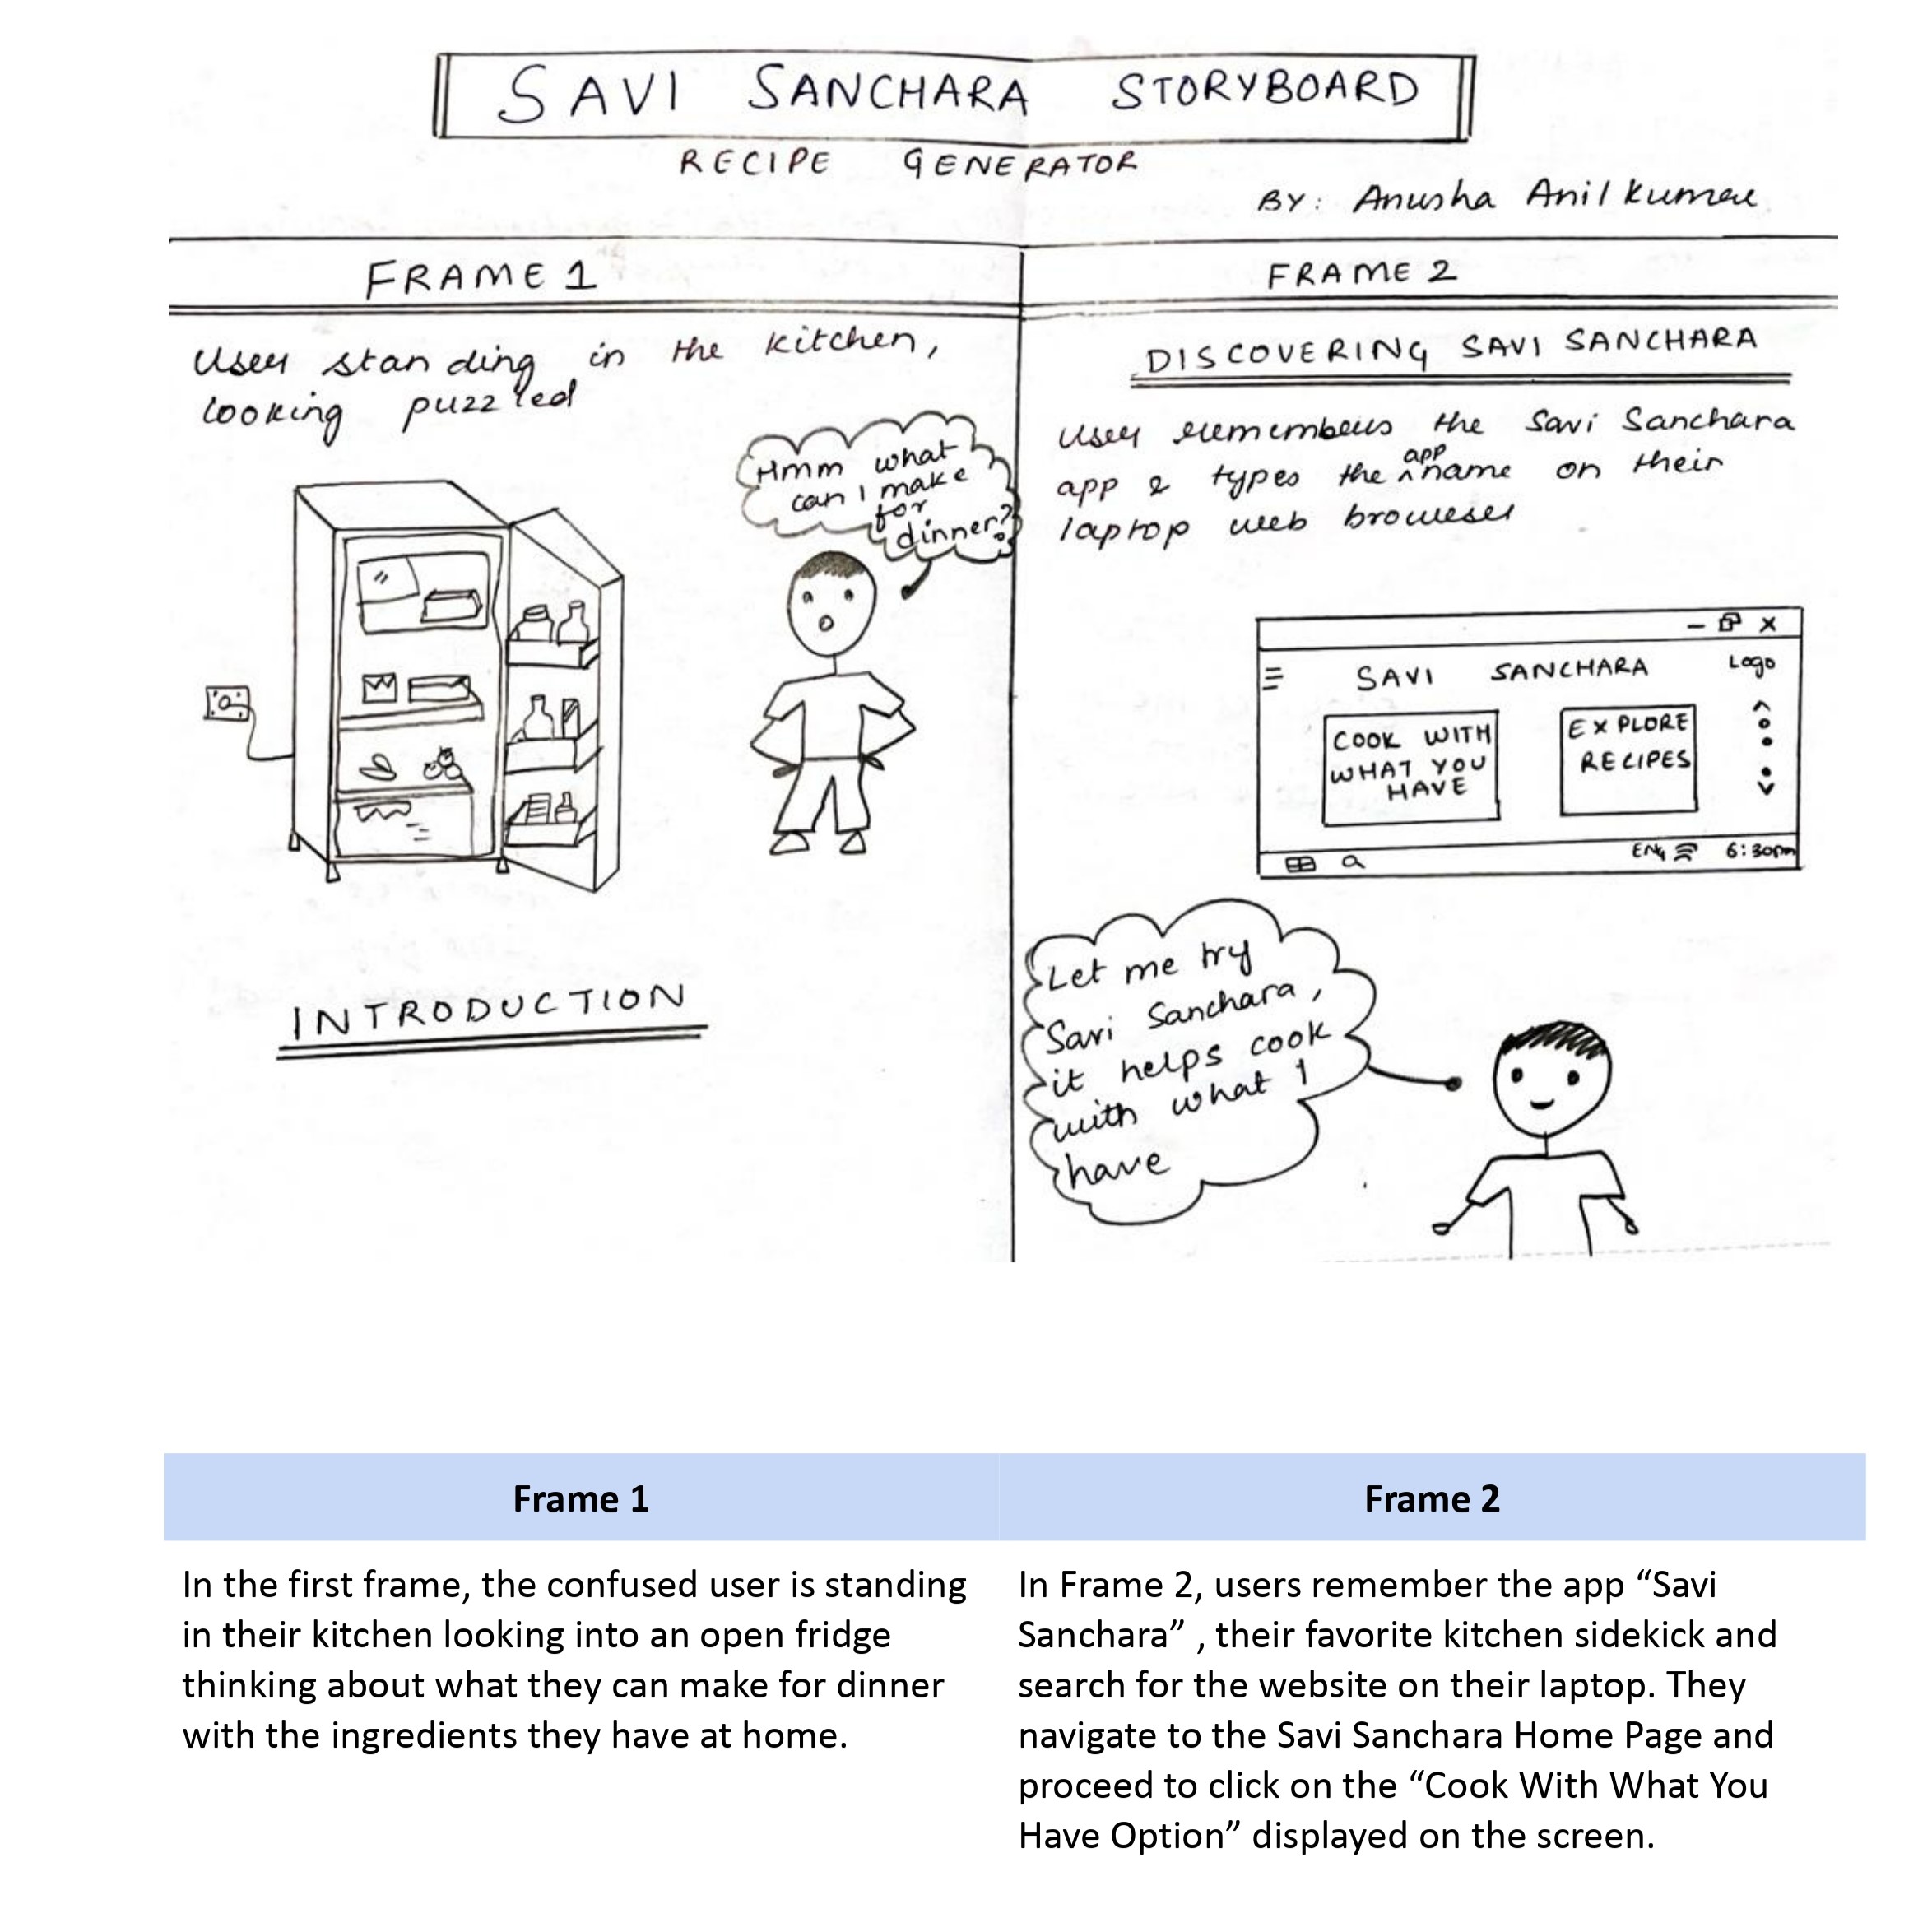 SAVI SANCHARA STORYBOARD
RECIPE GENERATOR
BY: Anusha Anil Kumar
FRAME 1
User standing in the kitchen,
looking puzzled
Hmm what
can I make
for
dinner?
INTRODUCTION
FRAME 2
DISCOVERING SAVI SANCHARA
User remembers the Savi Sanchara
app & types the app name on their
laptop web browser
SAVI SANCHARA Logo
COOK WITH
WHAT YOU
HAVE
EXPLORE
RECIPES
ENG 6:30pm
Let me try
Savi Sanchara,
it helps cook
with what I
have
Frame 1
In the first frame, the confused user is standing
in their kitchen looking into an open fridge
thinking about what they can make for dinner
with the ingredients they have at home.
Frame 2
In Frame 2, users remember the app “Savi
Sanchara” , their favorite kitchen sidekick and
search for the website on their laptop. They
navigate to the Savi Sanchara Home Page and
proceed to click on the “Cook With What You
Have Option” displayed on the screen.